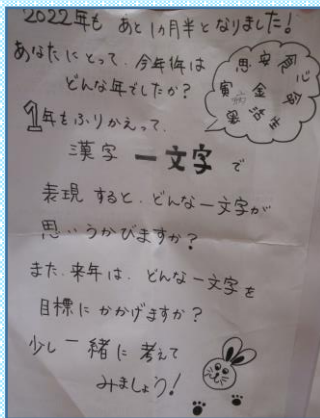 2022年も あと1ヵ月半となりました!
あなたにとって、今年1年は
どんな年でしたか?
1年をふりかえって、
漢字 一文字 で
表現 すると、どんな一文字が
思いうかびますか?
また、来年は、どんな一文字を
目標に かかげますか?
少し 一緒 に 考えて
みましょう!
思 安
心
寅 病 金
楽 活 生